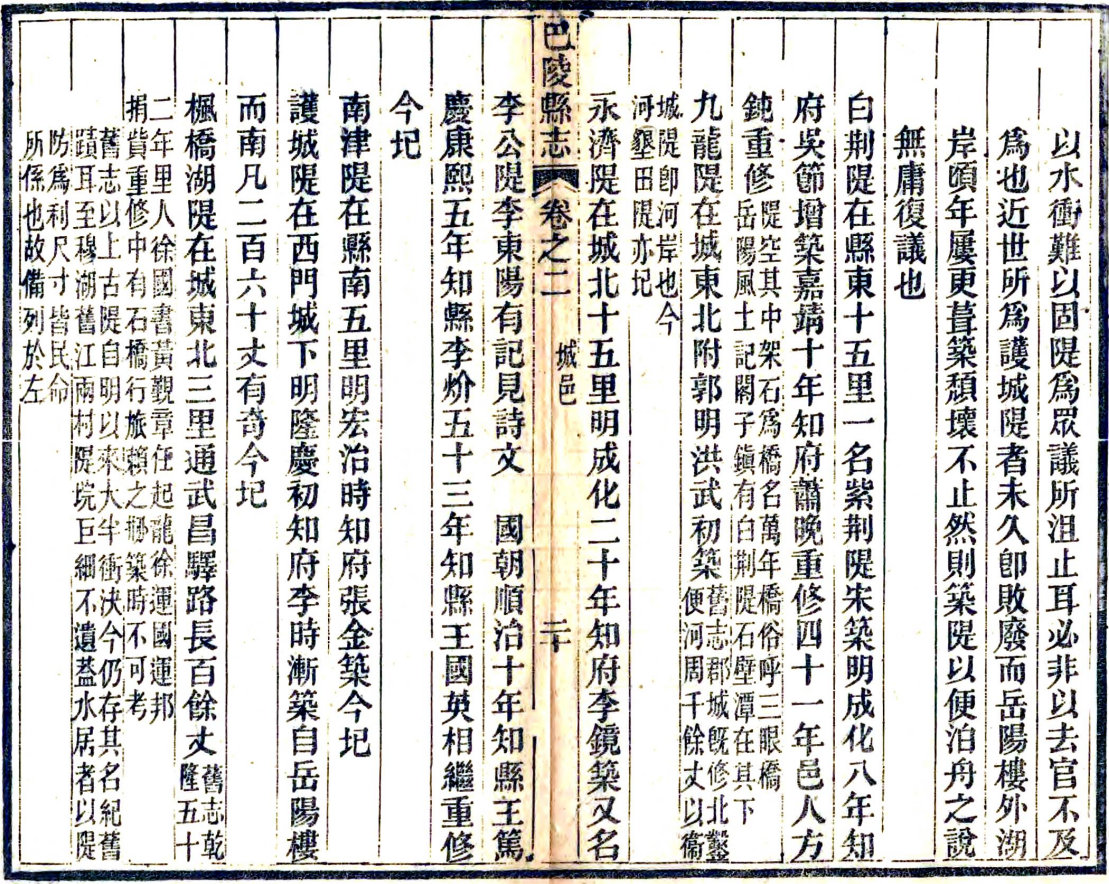 以水衝難以固隄爲眾議所沮止耳必非以去官不及
爲也近世所爲護城隄者未久卽敗廢而岳陽樓外湖
岸頃年屢更葺築頽壞不止然則築隄以便泊舟之說
無庸復議也
白荆隄在縣東十五里一名紫荆隄宋築明成化八年知
府吳節增築嘉靖十年知府蕭晚重修四十一年邑人方
鈍重修隄空其中架石爲橋名萬年橋俗呼三眼橋
岳陽風土記閣子鎮有白荆隄石壁潭在其下
九龍隄在城東北附郭明洪武初築舊志郡城旣修北鑿
便河周千餘丈以衞
城隄卽河岸也今
河墾田隄亦圮
永濟隄在城北十五里明成化二十年知府李鏡築又名
巴陵縣志 卷之二 城邑 二十
李公隄李東陽有記見詩文 國朝順治十年知縣王篤
慶康熙五年知縣李炌五十三年知縣王國英相繼重修
今圮
南津隄在縣南五里明宏治時知府張金築今圮
護城隄在西門城下明隆慶初知府李時漸築自岳陽樓
而南凡二百六十丈有奇今圮
楓橋湖隄在城東北三里通武昌驛路長百餘丈舊志乾
隆五十
二年里人徐國書黃觀章任起龍徐運國運邦
捐貲重修中有石橋行旅賴之刱築時不可考
舊志以上古隄自明以來大半衝決今仍存其名紀舊
蹟耳至穆湖舊江兩村隄垸巨細不遺蓋水居者以隄
防爲利尺寸皆民命
所係也故備列於左